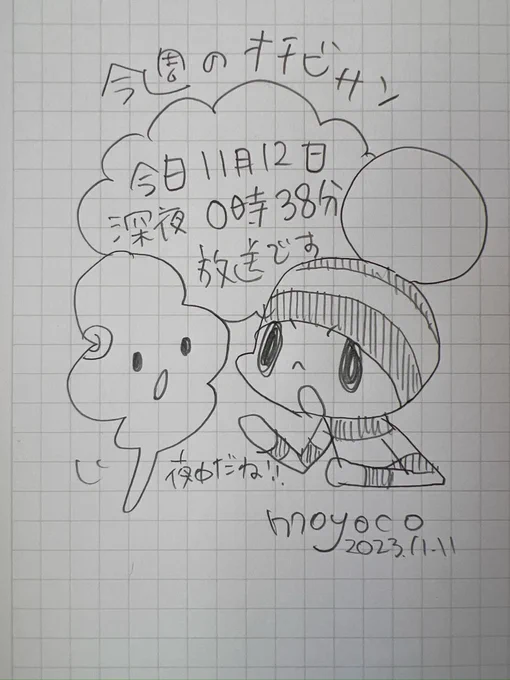 今週のオチビサン
今日11月12日
深夜 0時38分
放送です
じ
夜中だね!!
moyoco
2023.11.11